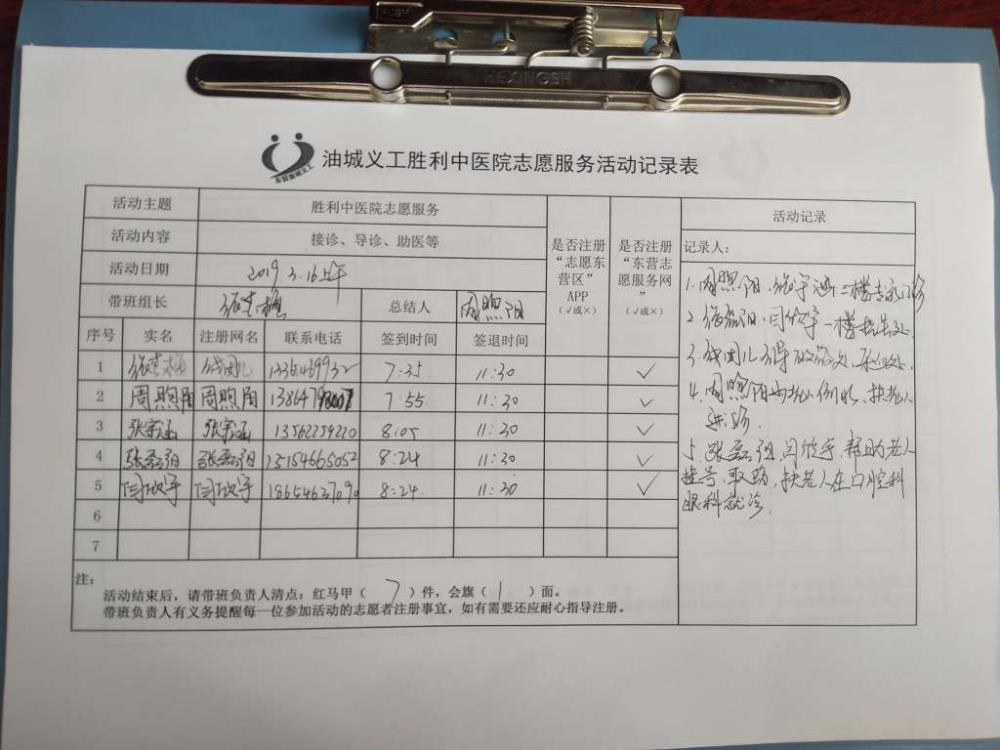 HEXINGSH
油城义工胜利中医院志愿服务活动记录表
活动主题 胜利中医院志愿服务
活动内容 接诊、导诊、助医等
活动日期 2019.3.16上午
带班组长 总结人 周煦阳
是否注册“志愿东营区”APP（√或×）
是否注册“东营志愿服务网”（√或×）
序号 实名 注册网名 联系电话 签到时间 签退时间
1 7:35 11:30 √
2 周煦阳 周煦阳 7:55 11:30 √
3 张宇涵 张宇涵 13562259220 8:05 11:30 √
4 张磊阳 张磊阳 15154665052 8:24 11:30 √
5 闫欣宇 闫欣宇 8:24 11:30 √
6
7
注：
活动结束后，请带班负责人清点：红马甲（7）件，会旗（1）面。
带班负责人有义务提醒每一位参加活动的志愿者注册事宜，如有需要还应耐心指导注册。
活动记录
记录人：
1.周煦阳、张宇涵二楼专家门诊
2.张磊阳、闫欣宇一楼
3.
4.周煦阳 扶老人
进诊
5.张磊阳、闫欣宇，帮助老人
挂号、取药，扶老人在口腔科
眼科就诊